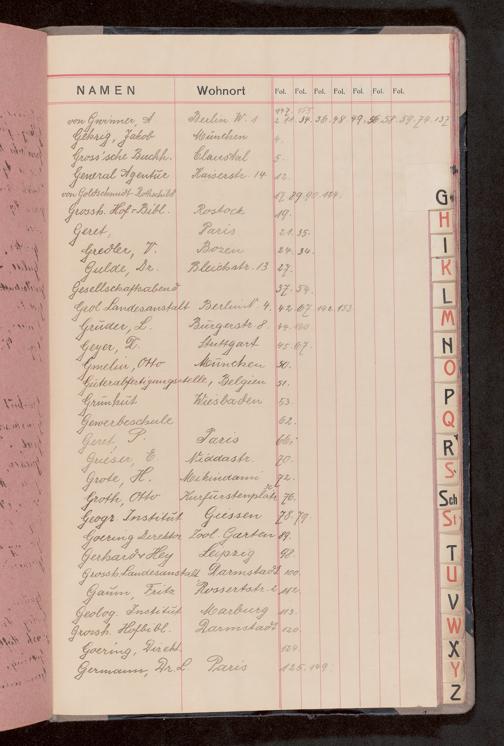 NAMEN Wohnort Fol. Fol. Fol. Fol. Fol. Fol. Fol.
von Gwinner, A Berlin W. 1
Gehrig, Jakob München 4.
Gross'sche Buchh. Clausthal 5.
General Agentur Kaiserstr. 14 12.
von Goldschmidt-Rothschild 17. 89. 90. 124.
Grossh. Hof-Bibl. Rostock 19.
Geret, Paris 21. 35.
Gredler, V. Bozen 24. 34.
Gulde, Dr. Bleichstr. 13 27.
Gesellschaftsabend 37. 54.
Geol Landesanstalt Berlin N 4. 42. 67. 142. 153.
Grüder, L. Bürgerstr 8.
Geyer, D. Stuttgart 45. 67.
Gmelin, Otto München 50.
Güterabfertigungsstelle, Belgien 51.
Grünhut Wiesbaden 53.
Gewerbeschule 62.
Geret, P. Paris 66.
Greiser, E. Niddastr. 70.
Grote, H. Mikindani 72.
Groth, Otto Kurfürstenplatz 76.
Geogr. Institut Giessen 78. 79.
Goering Direktor Zool. Garten 89.
Gerhard & Hey Leipzig 98.
Grossh. Landesanstalt Darmstadt 100.
Gaum, Fritz Rossertstr.
Geolog. Institut Marburg 113.
Grossh. Hofbibl. Darmstadt 120.
Goering, Direkt. 124.
Germann, Dr. L Paris 125. 149.
G
H
I
K
L
M
N
O
P
Q
R
S
Sch
St
T
U
V
W
X
Y
Z